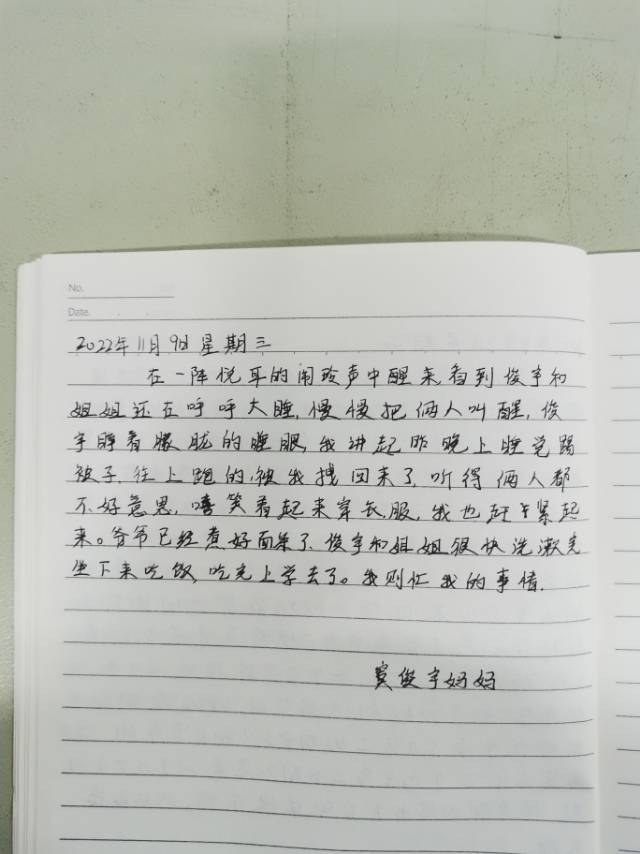 No.
Date.
2022年11月9日星期三
在一阵悦耳的闹玲声中醒来看到俊宇和
姐姐还在呼呼大睡,慢慢把俩人叫醒,俊
宇睁着朦胧的睡眼,我讲起昨晚上睡觉踢
被子,往上跑的,被我拽回来了,听得俩人都
不好意思,嘻笑着起来穿衣服,我也赶紧起
来。爷爷已经煮好面条了,俊宇和姐姐很快洗漱完
坐下来吃饭,吃完上学去了。我则忙我的事情.
俊宇妈妈